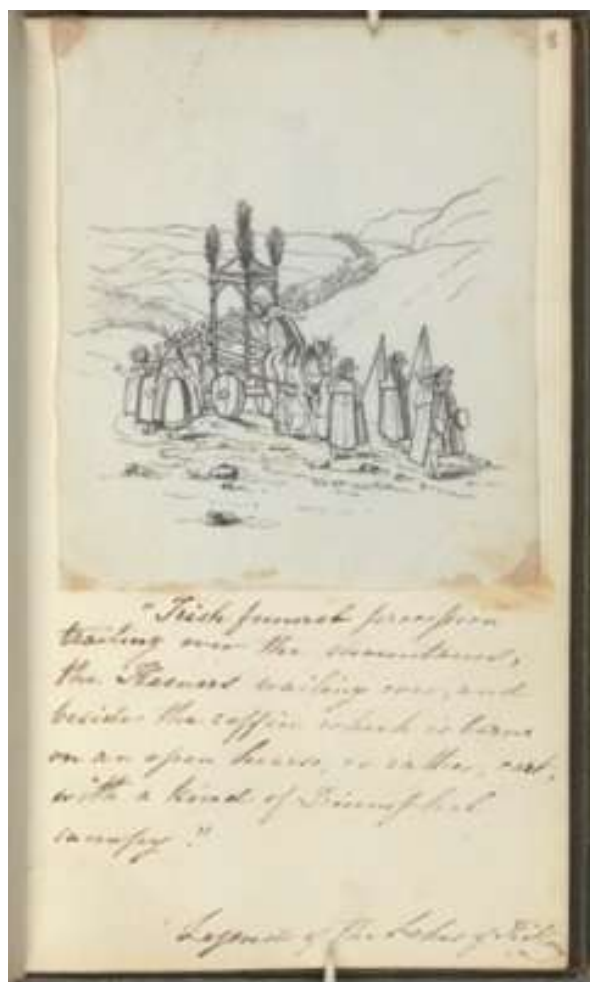 8
"Irish funeral procession
trailing over the mountains,
the Keeners wailing over, and
besides the coffin which is borne
on an open hearse, or rather, cart,
with a kind of Triumphal
canopy."
Legends of the Lakes of